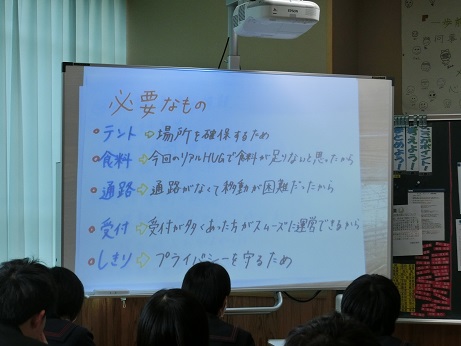 必要なもの
・テント⇨場所を確保するため
・食料⇨今回のリアルHUGで食料が足りないと思ったから
・通路⇨通路がなくて移動が困難だったから
・受付⇨受付が多くあった方がスムーズに運営できるから
・しきり⇨プライバシーを守るため
EPSON